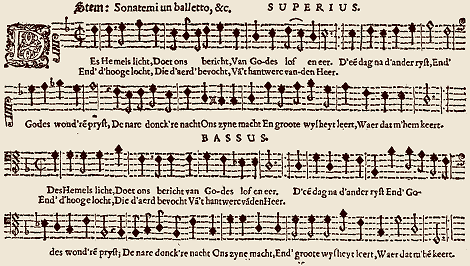 Stem: Sonatemi un balletto, &c. SUPERIUS.
Es Hemels licht, Doet ons bericht, Van Go-des lof en eer. D'eē dag na d'ander ryst, End'
End' d'hooge locht, Die d'aerd' bevocht, Vā't hantwerc van-den Heer.
Godes wond'rē pryst, De nare donck're nacht Ons zyne macht En groote wysheyt leert, Waer dat m'hem keert.
BASSUS.
Des Hemels licht, Doet ons bericht, van Go-des lof en eer. D'eē dag na d'ander ryst End' Go-
End' d'hooge locht, Die d'aerd bevocht Vā't hantwerc vādenHeer.
des wond'rē pryst; De nare donck're nacht Ons zyne macht, End' groote wysheyt leert, Waer dat m'hē keert.